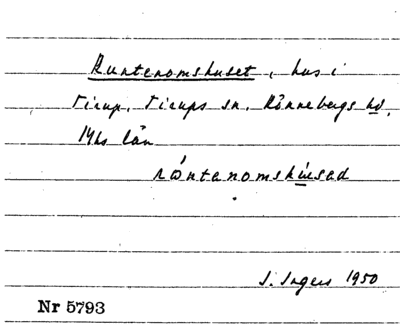 Runtenomshuset, hus i
Tirup, Tirups sn, Rönnebergs hd,
Mhs län
rôntenomshúsed
I. Ingers 1950
Nr 5793